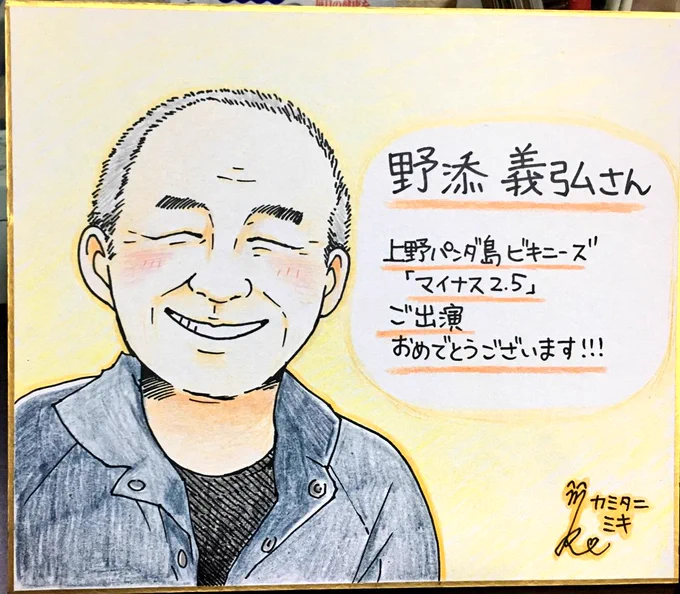 野添 義弘さん
上野パンダ島ビキニーズ
「マイナス2.5」
ご出演
おめでとうございます!!!
カミタニ
ミキ